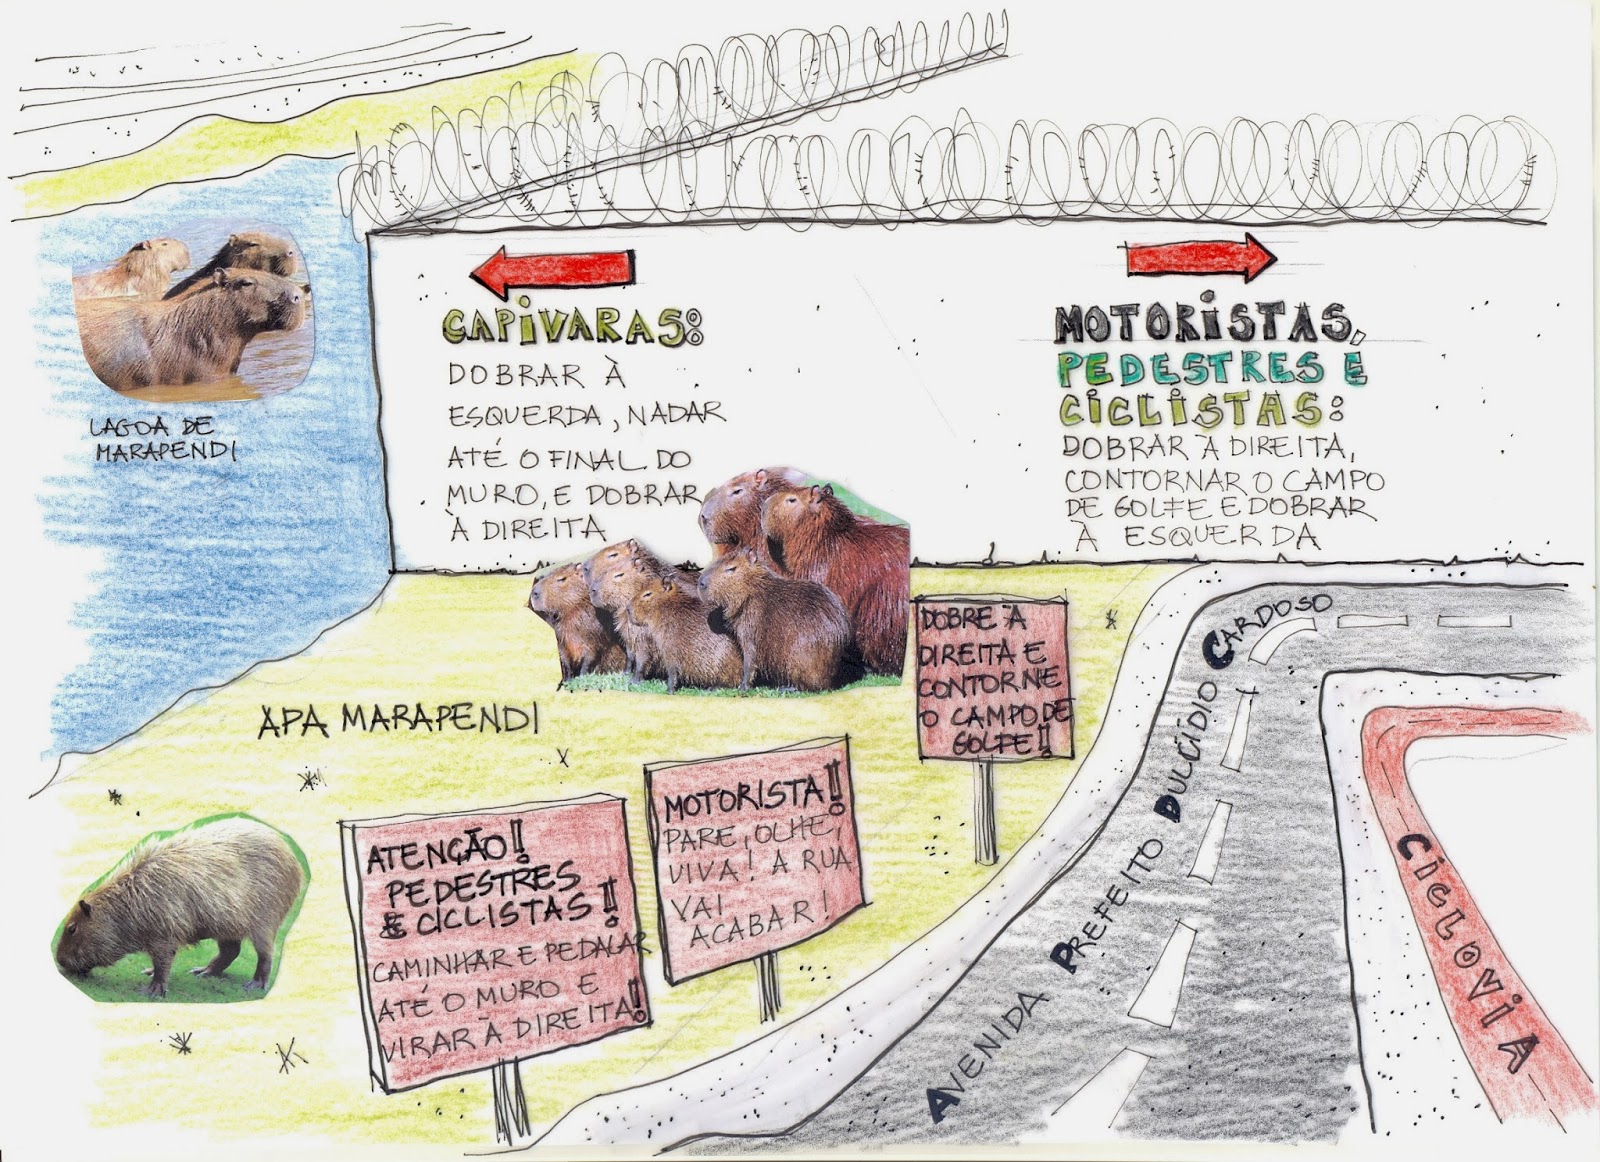 CAPIVARAS:
DOBRAR À
ESQUERDA, NADAR
ATÉ O FINAL DO
MURO, E DOBRAR
À DIREITA
MOTORISTAS,
PEDESTRES E
CICLISTAS:
DOBRAR À DIREITA,
CONTORNAR O CAMPO
DE GOLFE E DOBRAR
À ESQUERDA
LAGOA DE
MARAPENDI
APA MARAPENDI
DOBRE À
DIREITA E
CONTORNE
O CAMPO DE
GOLFE!!
MOTORISTA!!
PARE, OLHE,
VIVA! A RUA
VAI
ACABAR!
ATENÇÃO!
PEDESTRES
E CICLISTAS!!
CAMINHAR E PEDALAR
ATÉ O MURO E
VIRAR À DIREITA!
AVENIDA PREFEITO DULCÍDIO CARDOSO
CICLOVIA